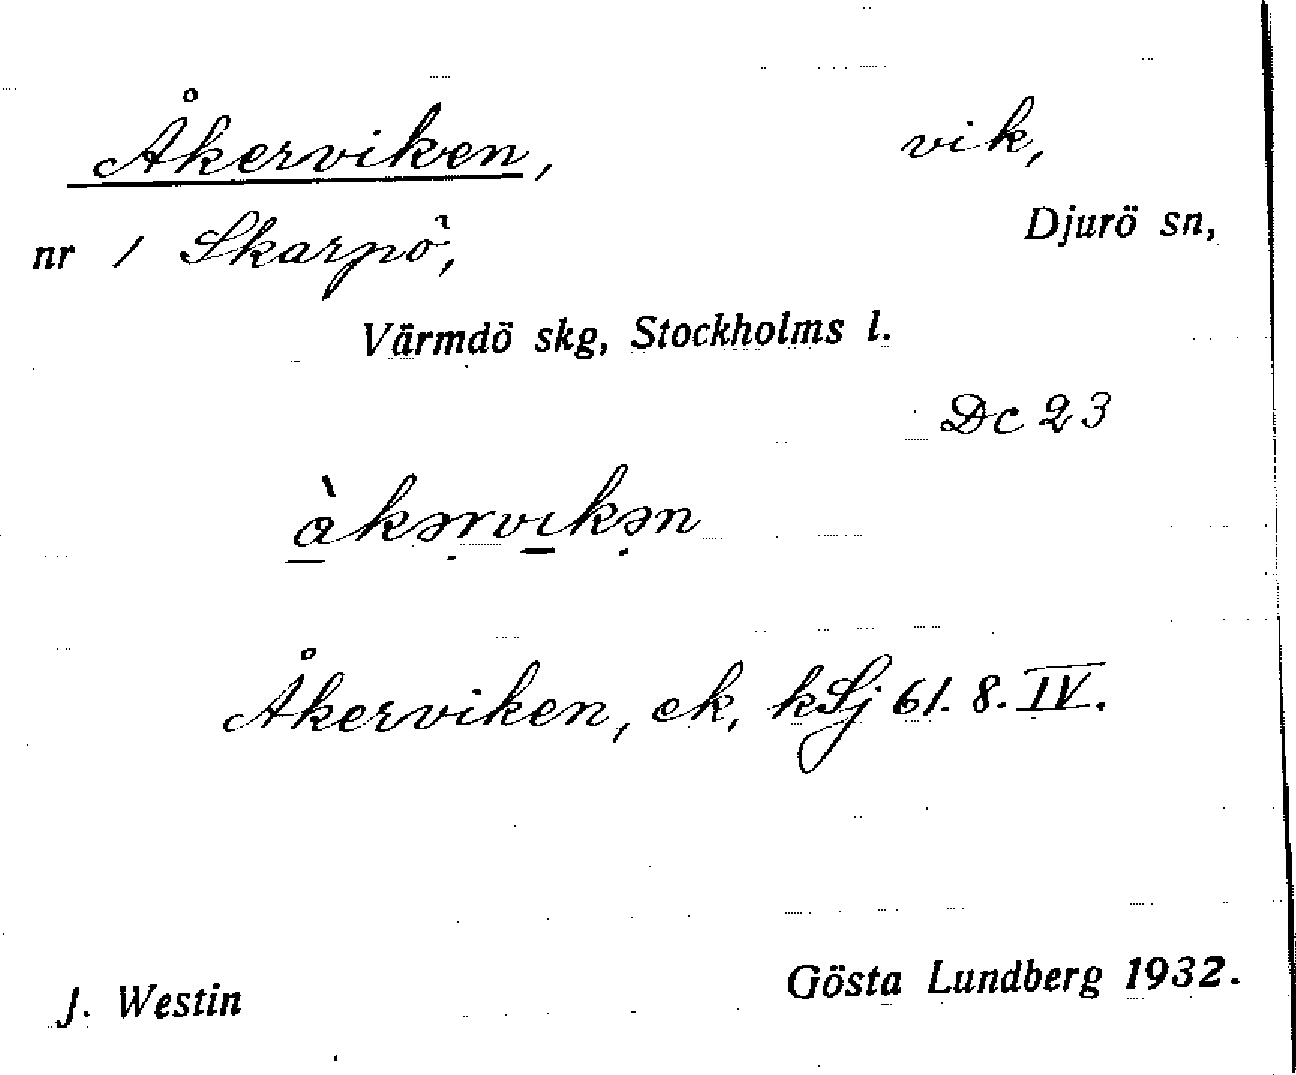 Åkerviken, vik,
nr 1 Skarpö, Djurö sn,
Värmdö skg, Stockholms l.
Dc 23
àkərvıkən
Åkerviken, ek, kSj 61. 8. IV.
J. Westin Gösta Lundberg 1932.